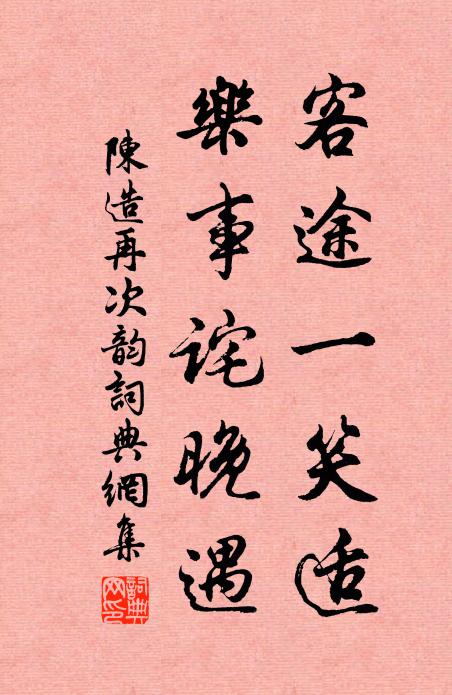 客途一笑适
樂事詫晚遇
陳造再次韵詞典網集
詞典网印